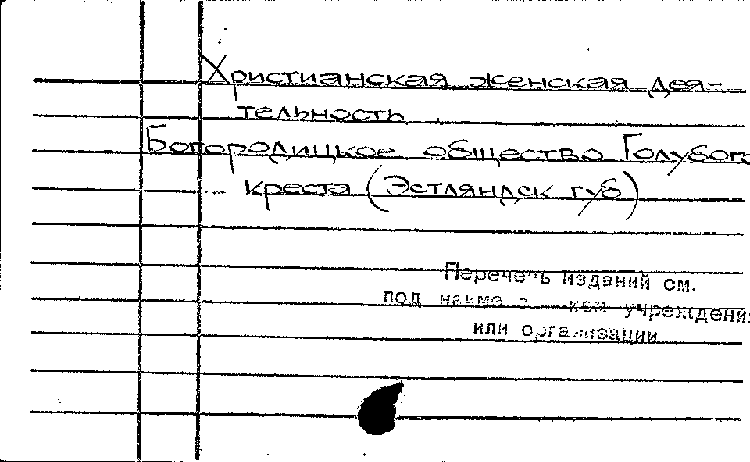 Христианская женская дея-
тельность
Богородицкое общество Голубого
креста (Эстляндск губ)
Перечень изданий см.
под учреждени
или организации